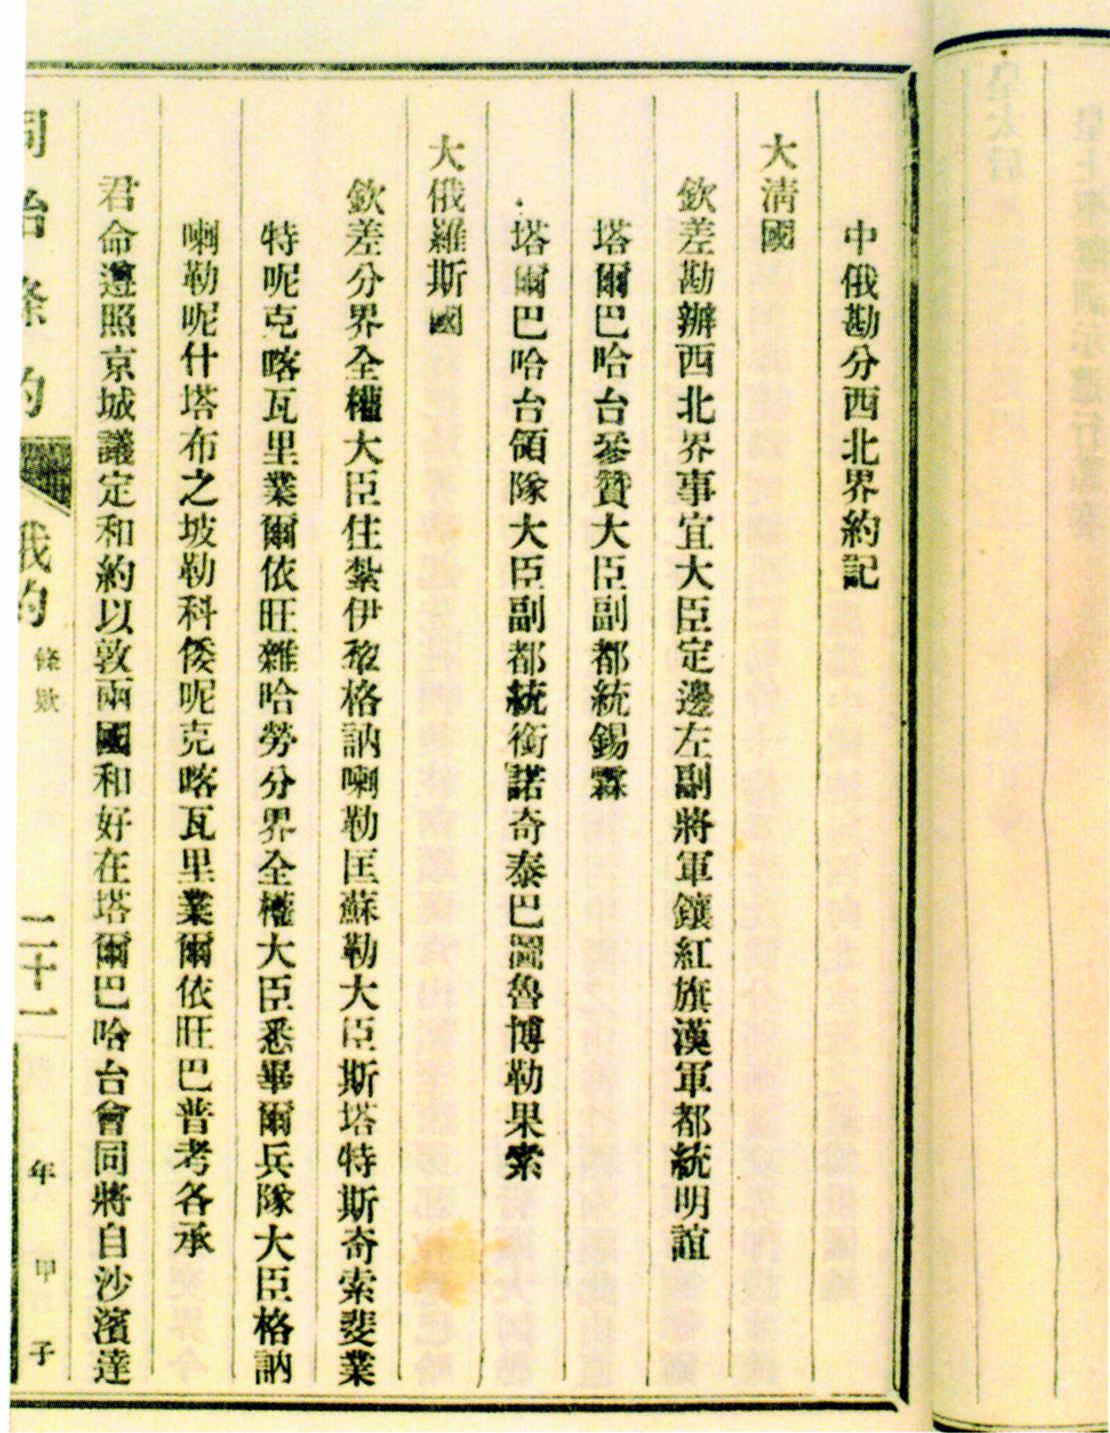 中俄勘分西北界約記
大清國
欽差勘辦西北界事宜大臣定邊左副將軍鑲紅旗漢軍都統明誼
塔爾巴哈台參贊大臣副都統錫霖
塔爾巴哈台領隊大臣副都統銜諾奇泰巴圖魯博勒果索
大俄羅斯國
欽差分界全權大臣住紮伊犂格訥喇勒匡蘇勒大臣斯塔特斯奇索斐業
特呢克喀瓦里業爾依旺雜哈勞分界全權大臣悉畢爾兵隊大臣格訥
喇勒呢什塔布之坡勒科倭呢克喀瓦里業爾依旺巴普考各承
君命遵照京城議定和約以敦兩國和好在塔爾巴哈台會同將自沙濱達
同治條約 俄約 條款 二十一 年 甲子